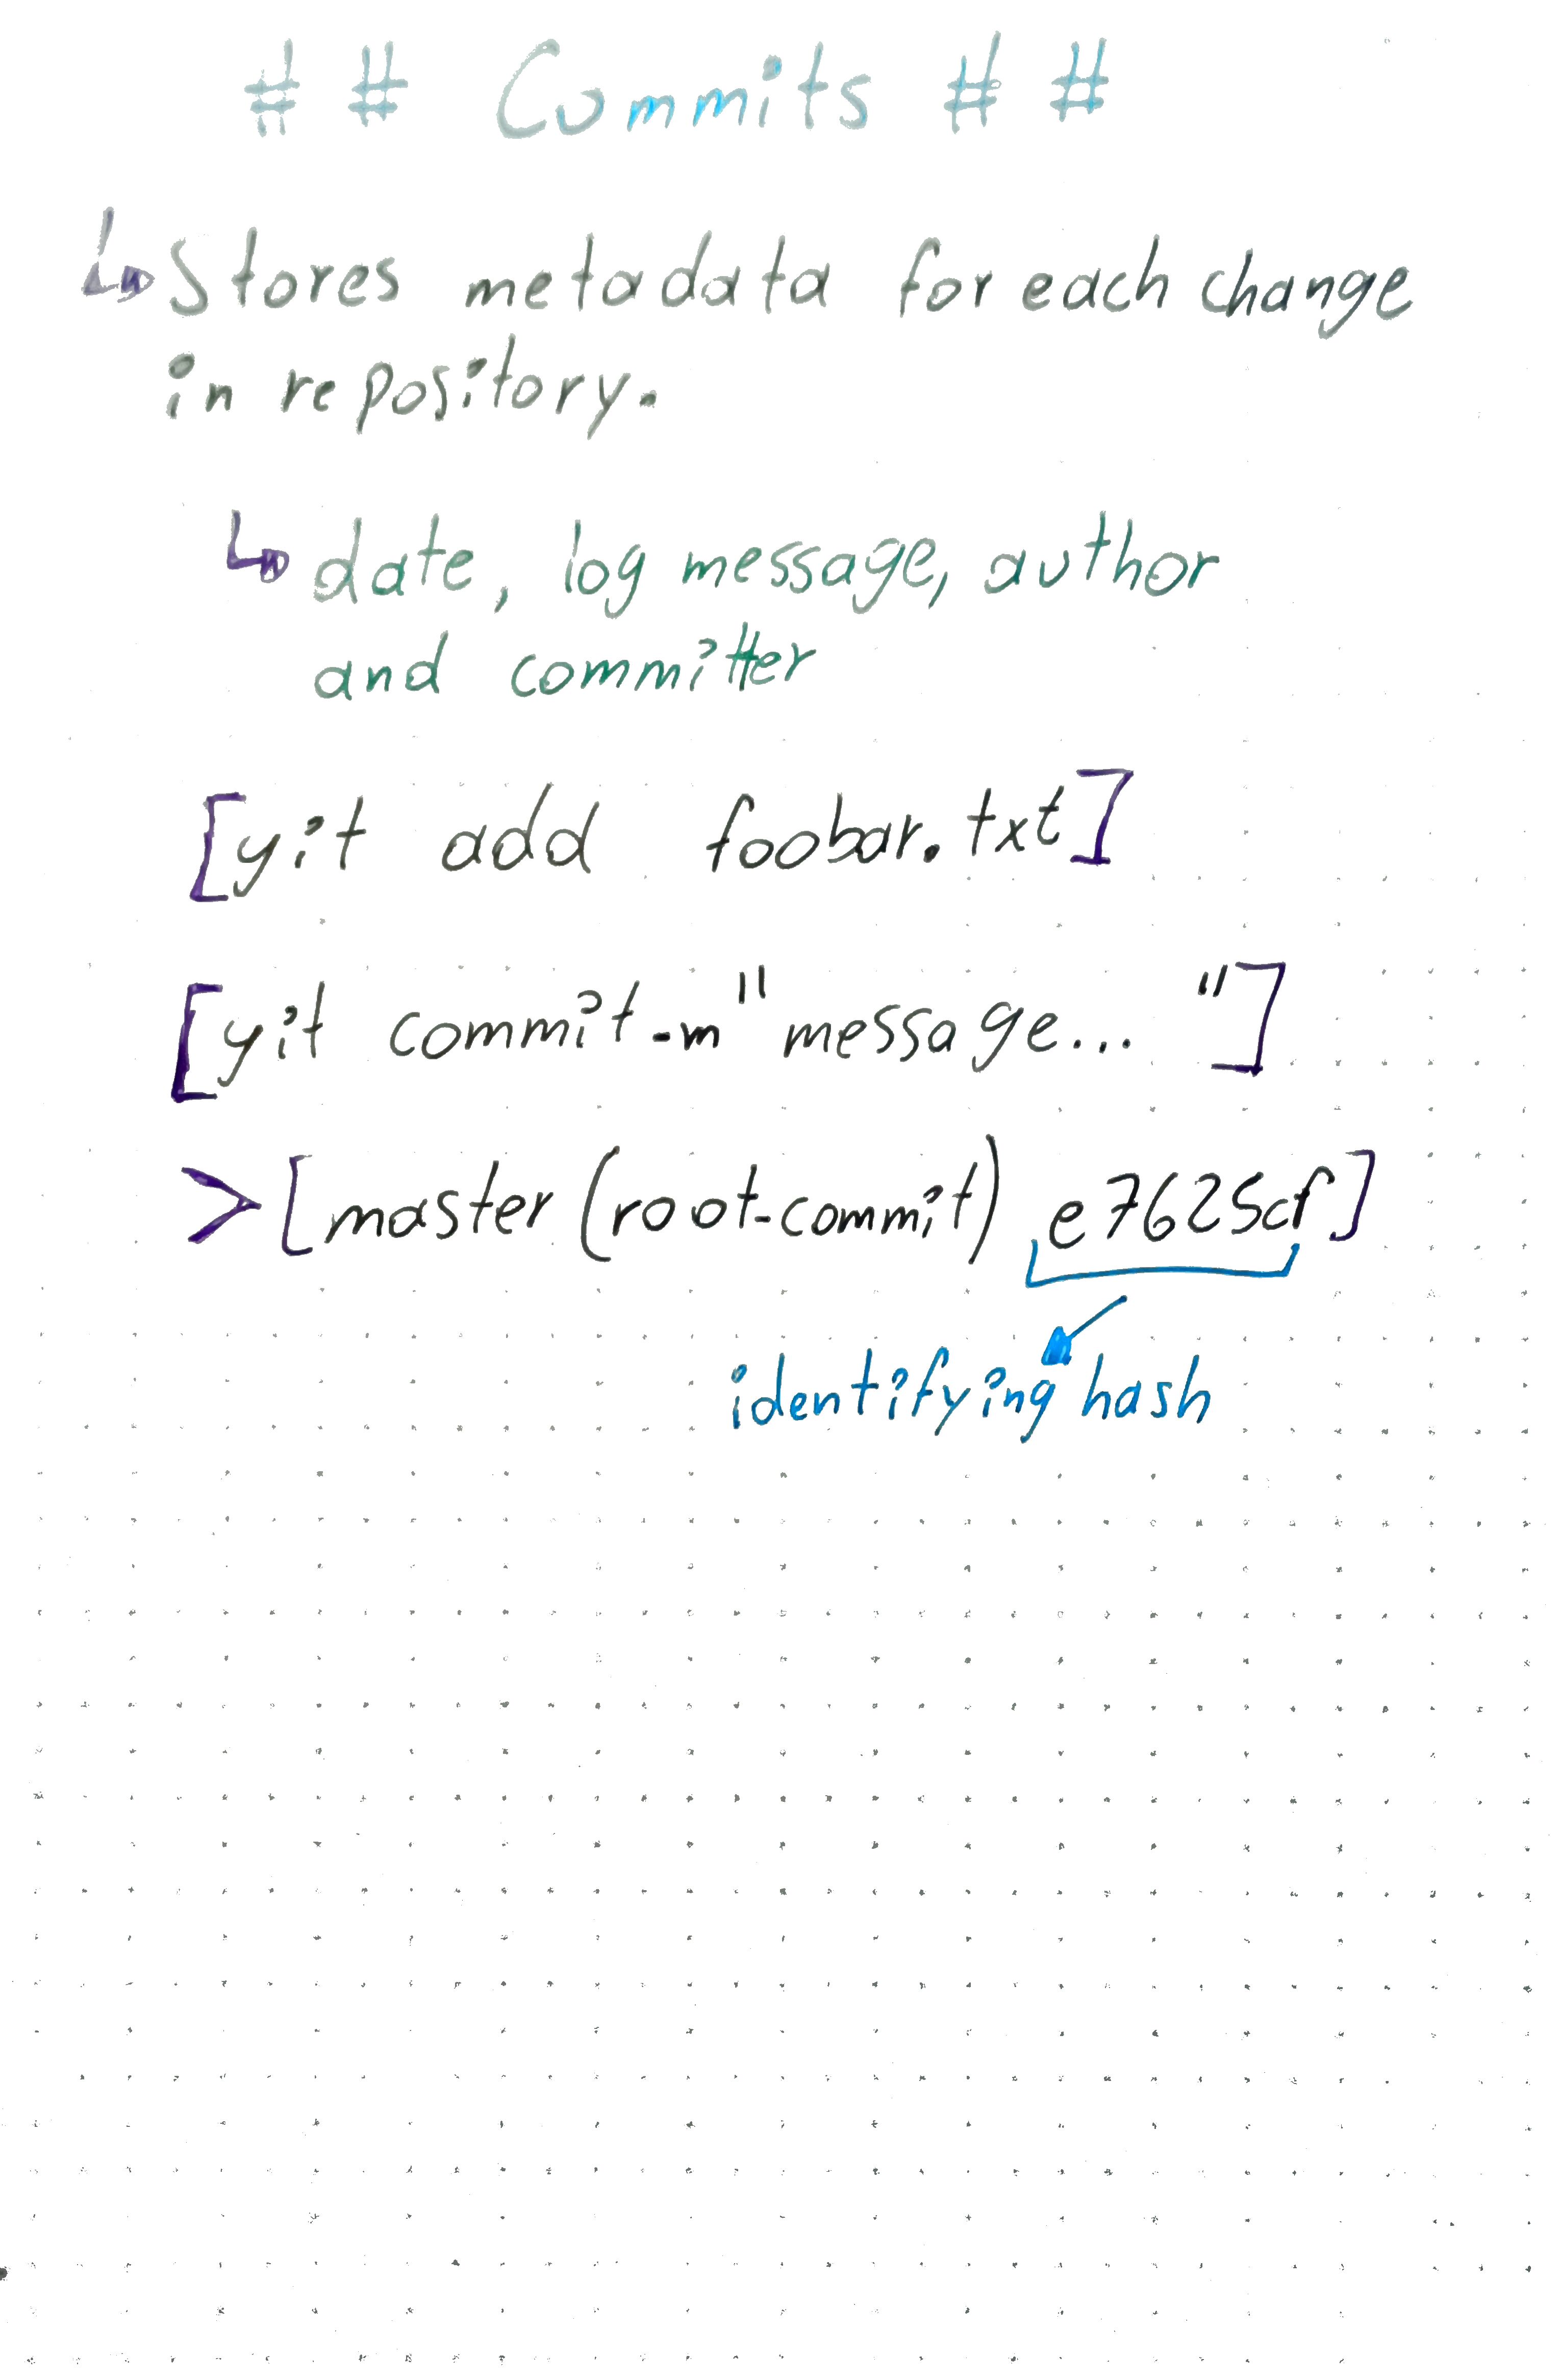 # # Commits # #
↳ Stores metadata for each change
in repository.
↳ date, log message, author
and committer
[git add foobar.txt]
[git commit -m "message... "]
> [master (root-commit) e7625cf]
identifying hash